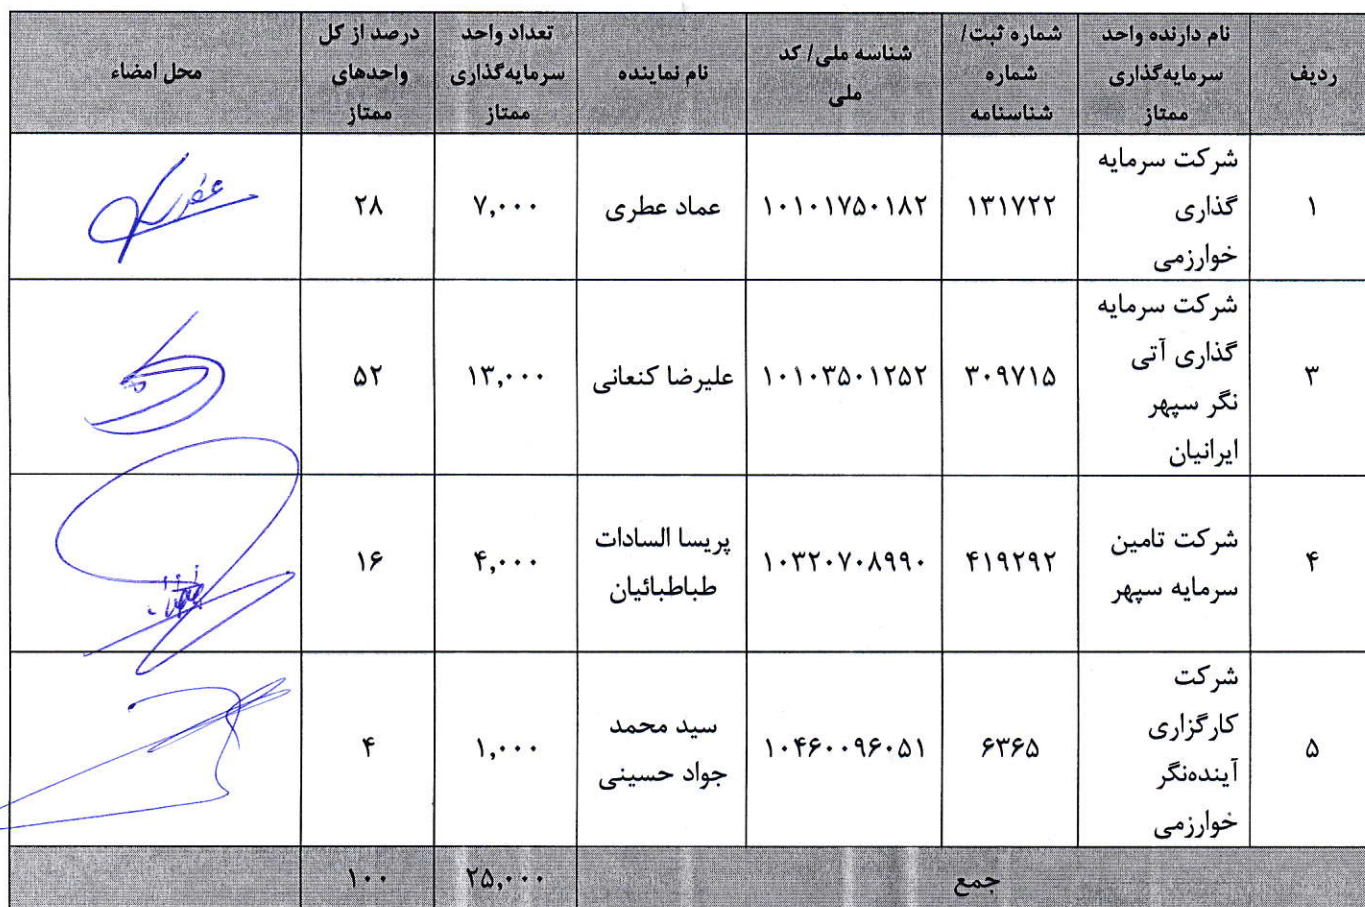 ردیف
نام دارنده واحد
سرمایه‌گذاری
ممتاز
شماره ثبت/
شماره
شناسنامه
شناسه ملی/ کد
ملی
نام نماینده
تعداد واحد
سرمایه‌گذاری
ممتاز
درصد از کل
واحدهای
ممتاز
محل امضاء
۱
شرکت سرمایه
گذاری
خوارزمی
۱۳۱۷۲۲
۱۰۱۰۱۷۵۰۱۸۲
عماد عطری
۷,۰۰۰
۲۸
۳
شرکت سرمایه
گذاری آتی
نگر سپهر
ایرانیان
۳۰۹۷۱۵
۱۰۱۰۳۵۰۱۲۵۲
علیرضا کنعانی
۱۳,۰۰۰
۵۲
۴
شرکت تامین
سرمایه سپهر
۴۱۹۲۹۲
۱۰۳۲۰۷۰۸۹۹۰
پریسا السادات
طباطبائیان
۴,۰۰۰
۱۶
۵
شرکت
کارگزاری
آینده‌نگر
خوارزمی
۶۳۶۵
۱۰۴۶۰۰۹۶۰۵۱
سید محمد
جواد حسینی
۱,۰۰۰
۴
جمع
۲۵,۰۰۰
۱۰۰